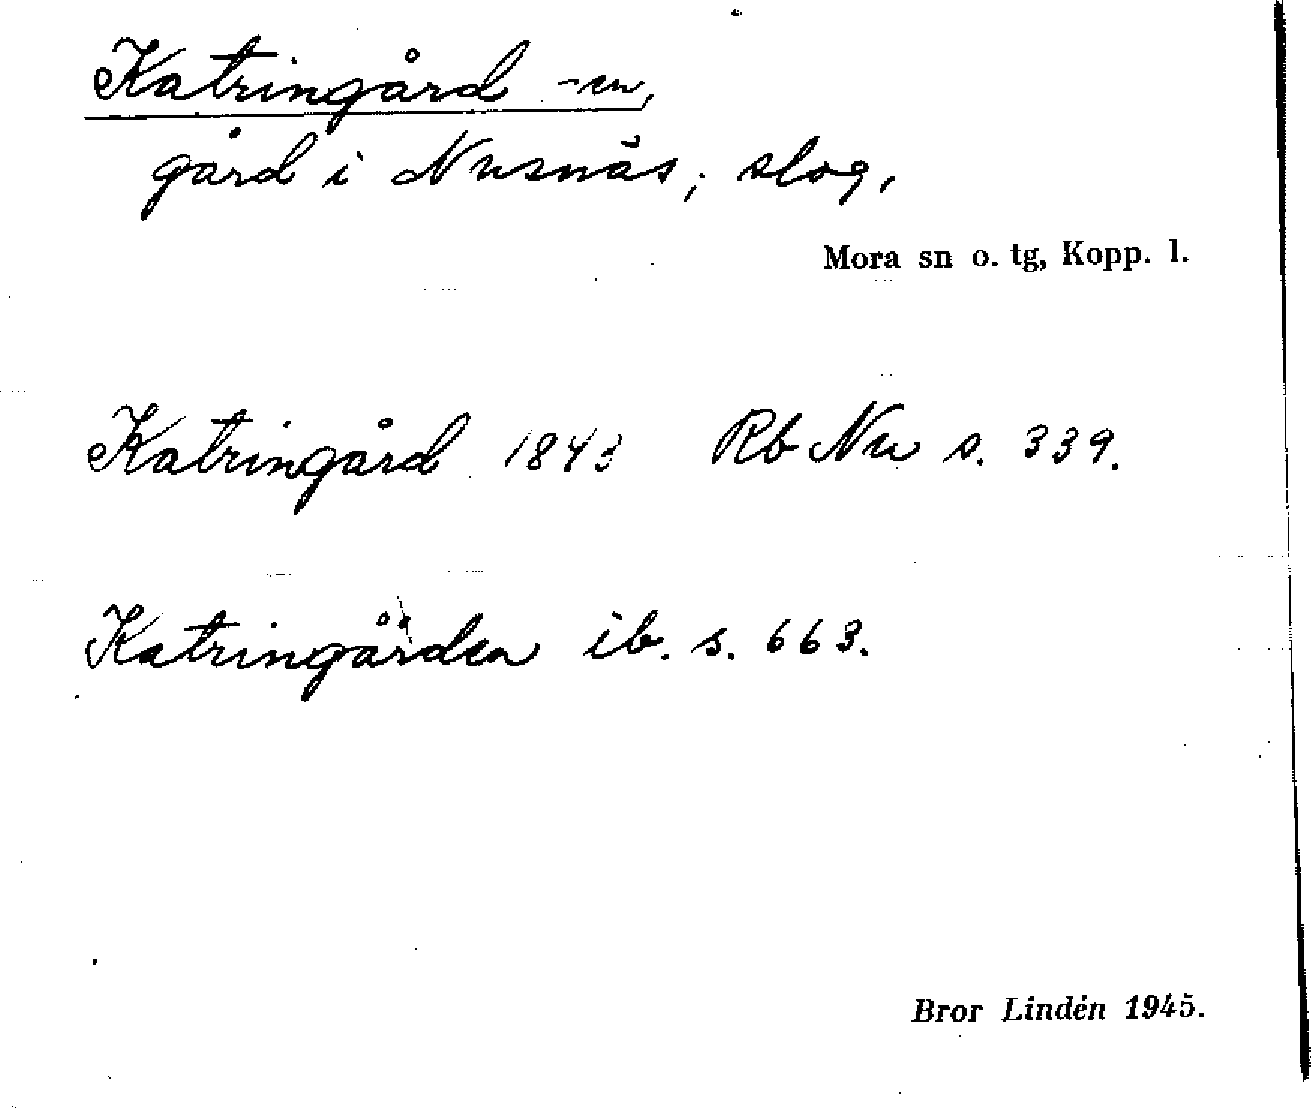 Katringård -en,
gård i Nusnäs, slog,
Mora sn o. tg, Kopp. l.
Katringård 1843 Rb Nu s. 339.
Katringården ib. s. 663.
Bror Lindén 1945.